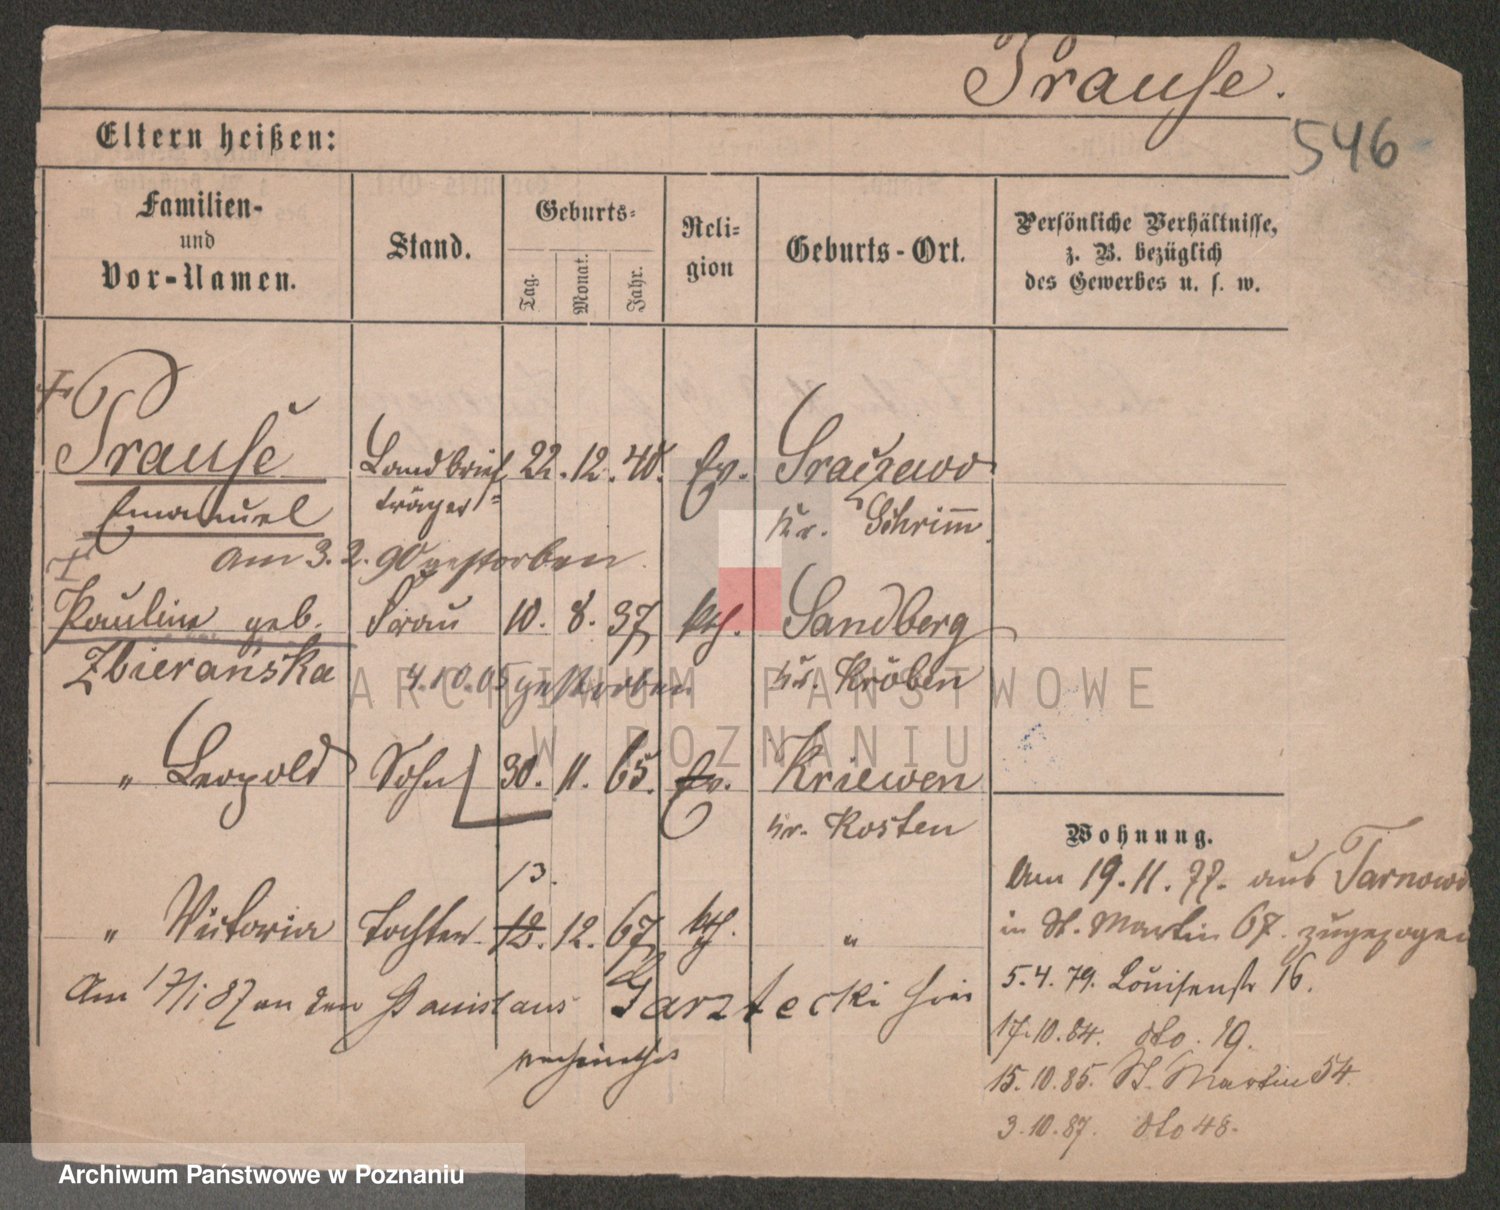 Prause.
546
Eltern heißen:
Familien- und Vor-Namen.
Stand.
Geburts-
Tag.
Monat.
Jahr.
Reli-
gion
Geburts-Ort.
Persönliche Verhältnisse,
z. B. bezüglich
des Gewerbes u. s. w.
Prause Landbrief 22. 12. 40. Ev.
Emanuel träger Kr. Schrimm
am 3. 2. 90 gestorben
Pauline geb. Frau 10. 8. 37 kth. Sandberg
Zbierańska 4.10.05 gestorben Kr. Kröben
" Leopold Sohn 30. 11. 65. Ev. Kriewen
Kr. Kosten
13.
" Victoria Tochter 12. 12. 67 kth. "
Am 17/1 87 an den Stanislaus Garztecki hier
Wohnung.
Am 19.11.77. aus Tarnowo
in St. Martin 67. zugezogen
5.4.79. Louisenstr 16.
17.10.84. dto. 19.
15.10.85. St. Martin 54.
3.10.87. dto 48.
ARCHIWUM PAŃSTWOWE
W POZNANIU
Archiwum Państwowe w Poznaniu